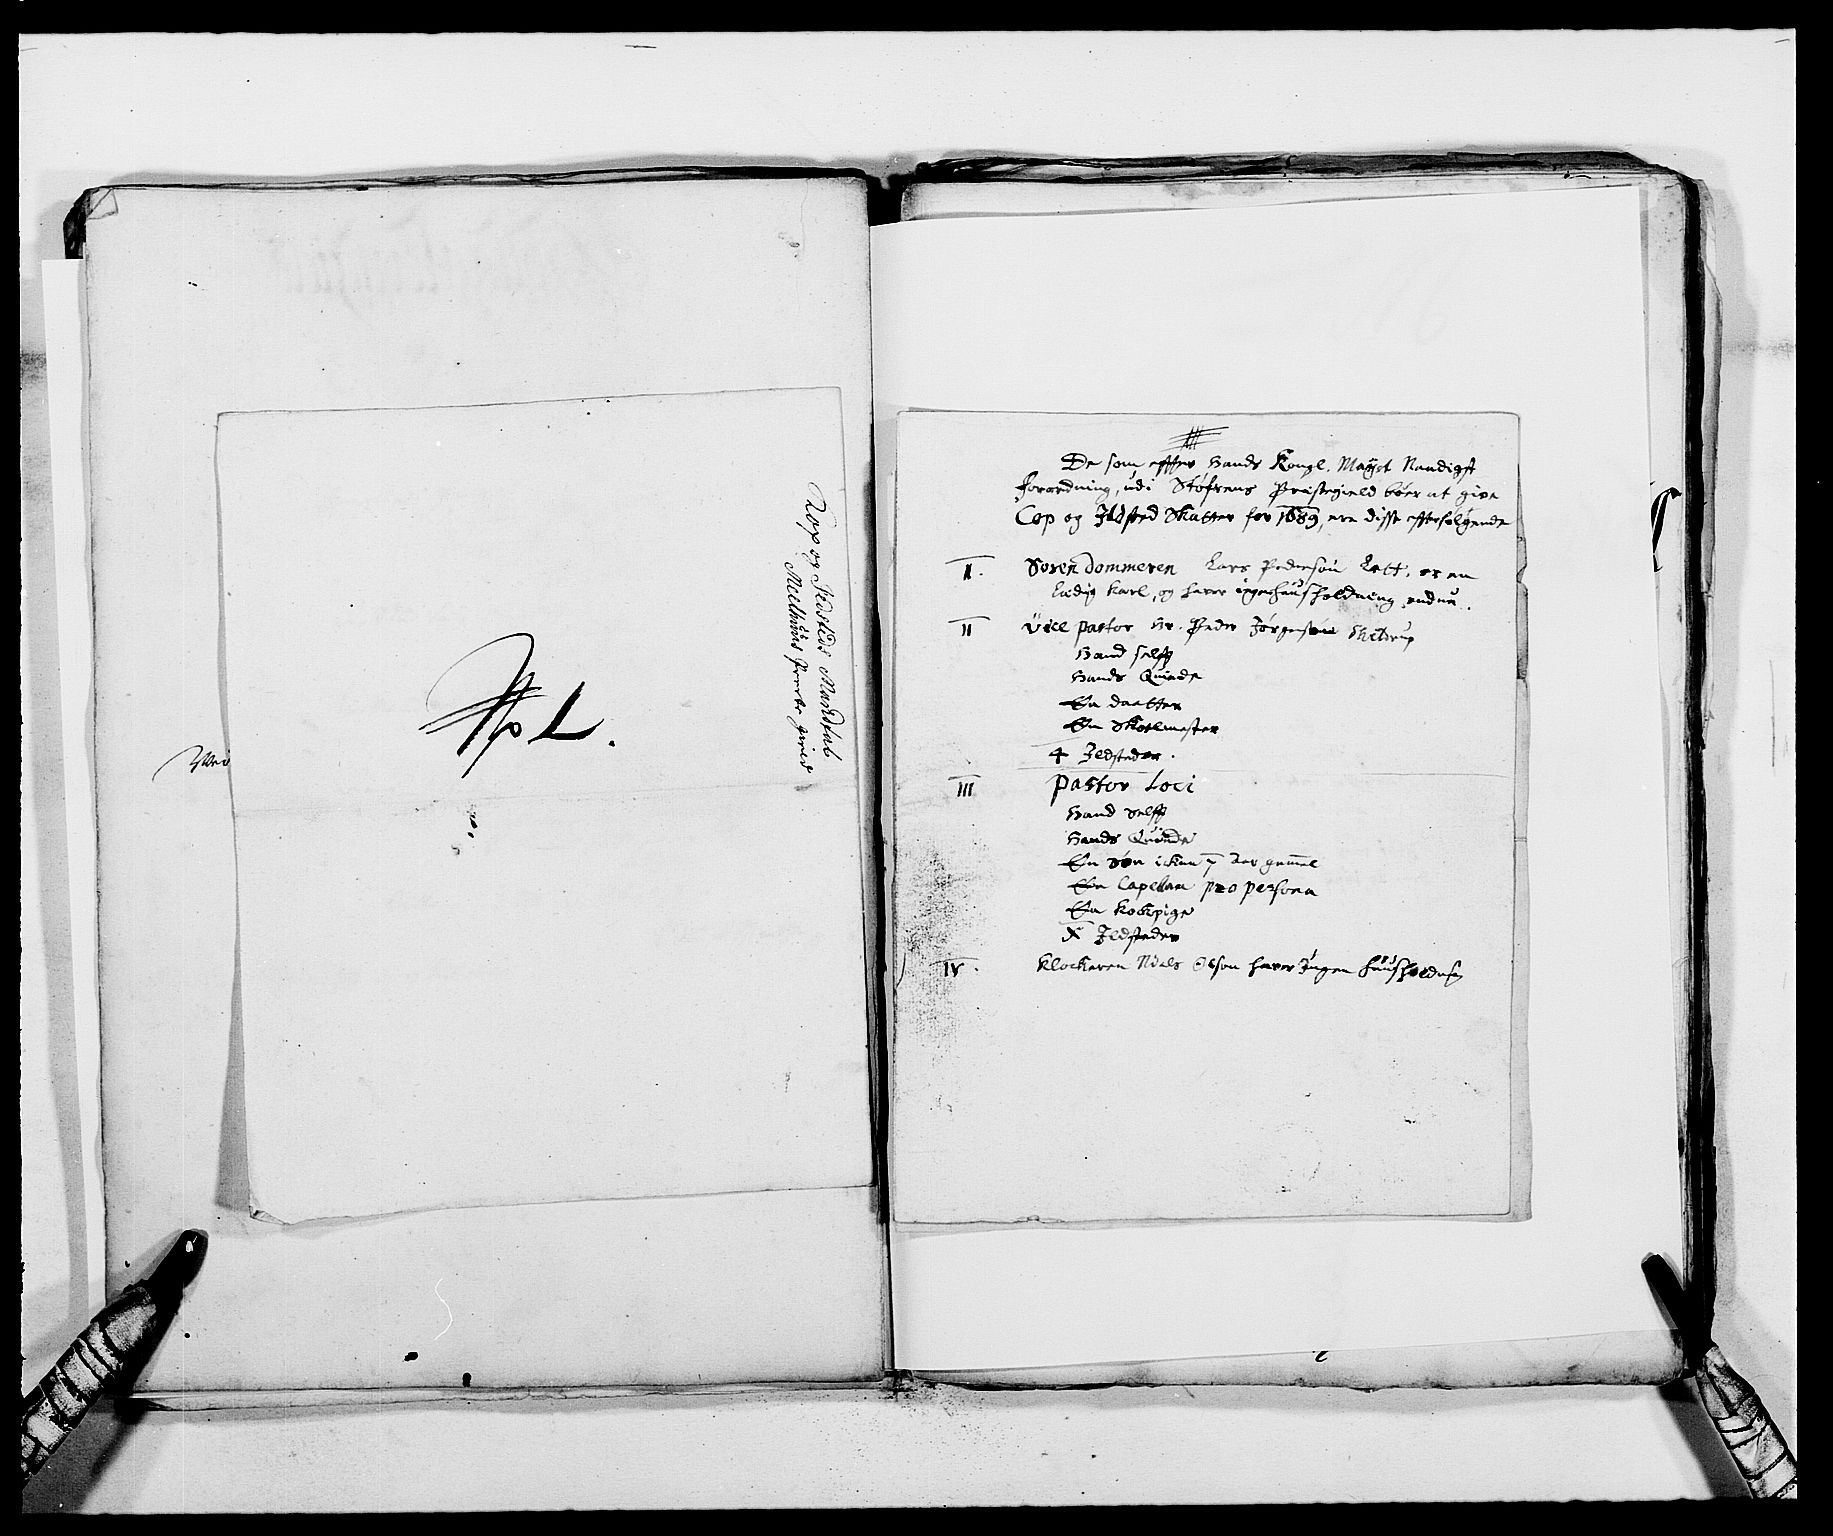 Kop og Ildsteds Mandtal
Meelhuus Præste gield
No L.
De som effter Hands Kongl. Mayst Naadigst
forordning, udi Støfrens Præstegield bøer at give
Cop og Ildsted Skatter for 1689, ere disse efterfølgende
I. Sorendommeren Lars Pedersøn Lett, er en
Ledig Karl, og haver ingen huusholdning endnu.
II Vice pastor Hr. Peder Jørgensøn
Hand selff
Hands Quinde
En daatter
En Skolemester
4 Ildsteder.
III Pastor Loci
Hand Selff
Hands Quinde
En Søn ickun 7 aar gammel
En Capellan pro persona
En Kockpige
X Ildsteder
IV. Klockeren Niels Olson haver Ingen huusholdning